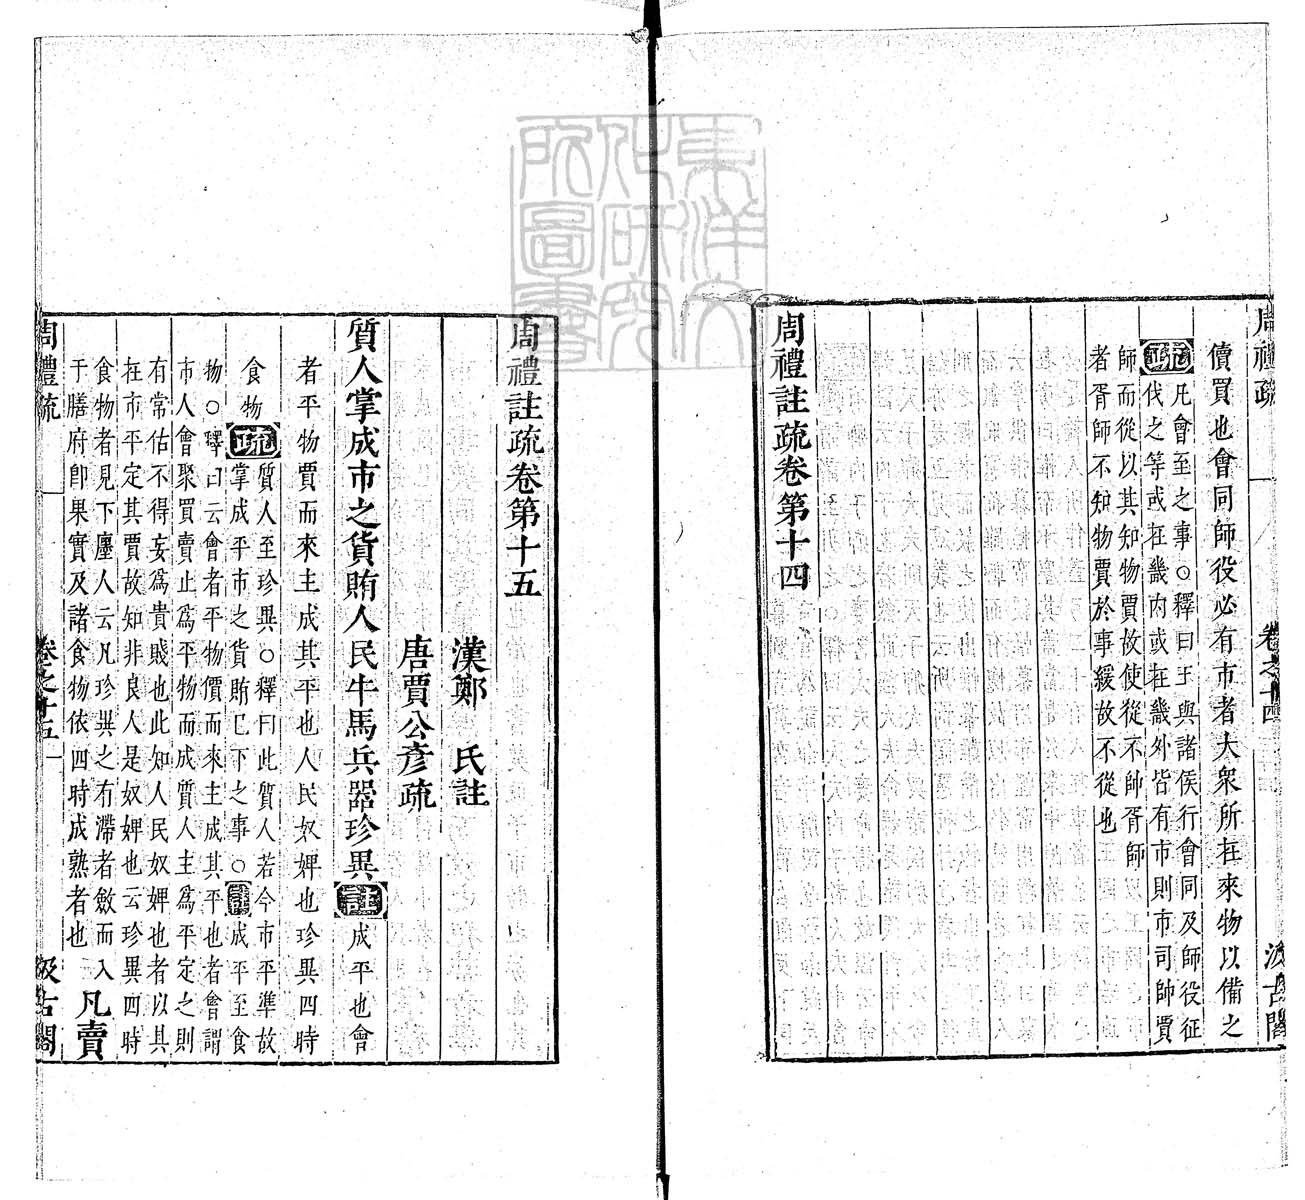 周禮疏
卷之十四
汲古閣
儥買也會同師役必有市者大衆所在來物以備之
疏凡會至之事○釋曰王與諸侯行會同及師役征
伐之等或在畿內或在畿外皆有市則市司帥賈
師而從以其知物賈故使從不帥胥師
者胥師不知物賈於事緩故不從也
周禮註疏卷第十四
東洋文
化研究
所圖書
周禮註疏卷第十五
漢鄭 氏註
唐賈公彥疏
質人掌成市之貨賄人民牛馬兵器珍異註成平也會
者平物賈而來主成其平也人民奴婢也珍異四時
食物疏質人至珍異○釋曰此質人若今市平準故
掌成平市之貨賄已下之事○註成平至食
物○釋曰云會者平物價而來主成其平也者會謂
市人會聚買賣止爲平物而成質人主爲平定之則
有常估不得妄爲貴賤也此知人民奴婢也者以其
在市平定其賈故知非良人是奴婢也云珍異四時
食物者見下廛人云凡珍異之有滯者斂而入
于膳府卽果實及諸食物依四時成熟者也 凡賣
周禮疏
卷之十五
一
汲古閣